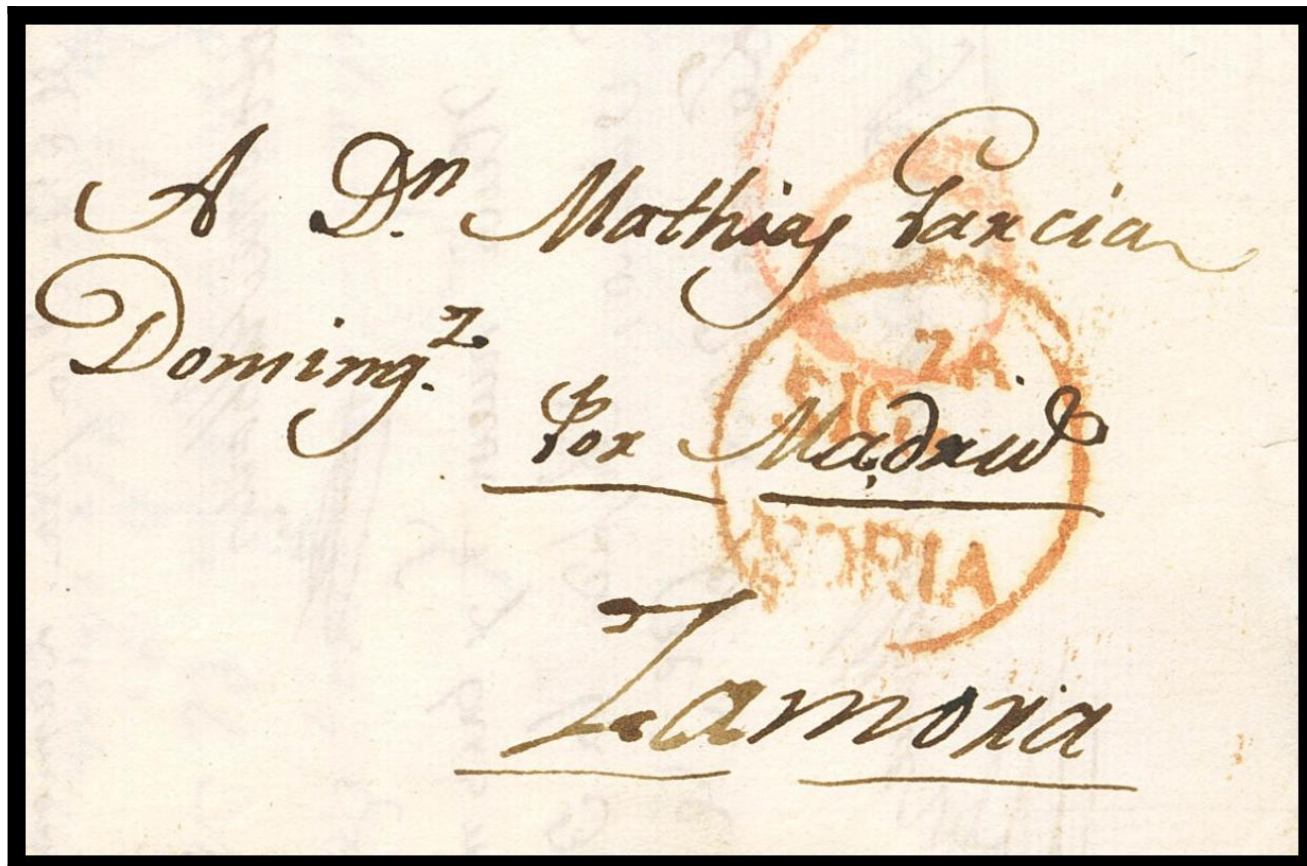 A Dn. Mathias Garcia
Doming.z
Por Madrid
SORIA
Zamora